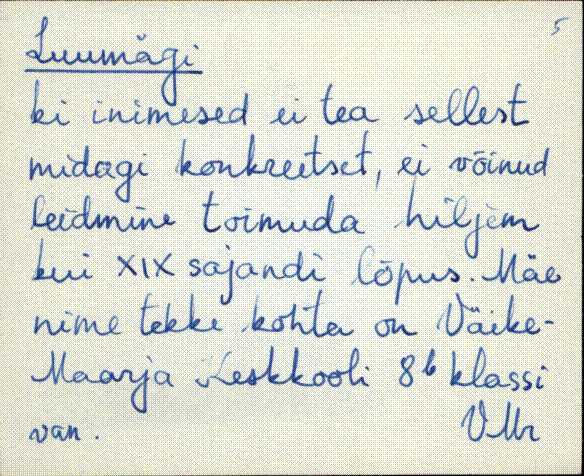 5
Luumägi
ki inimesed ei tea sellest
midagi konkreetset, ei võinud
leidmine toimuda hiljem
kui XIX sajandi lõpus. Mäe
nime tekke kohta on Väike-
Maarja Keskkooli 8b klassi
van.